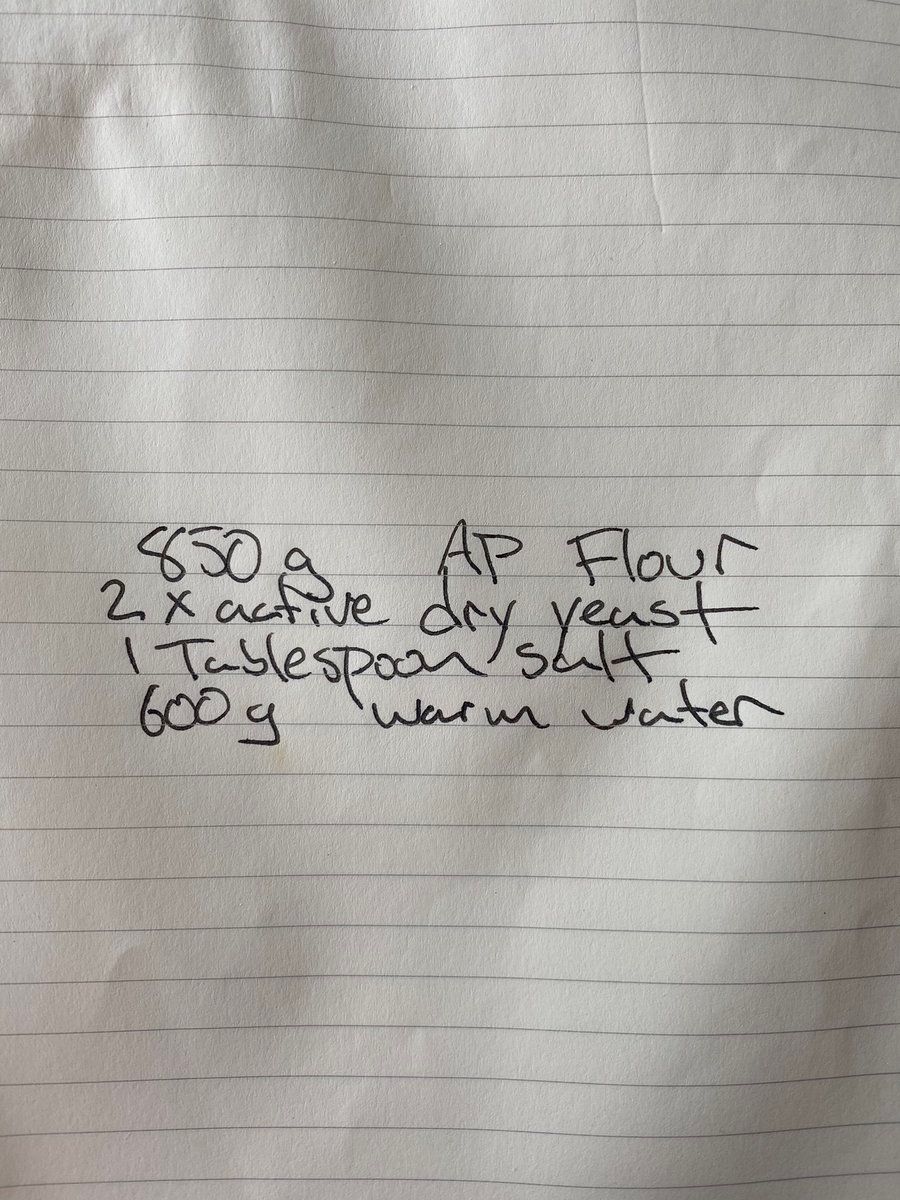 850 g AP Flour
2 x active dry yeast
1 Tablespoon salt
600 g warm water